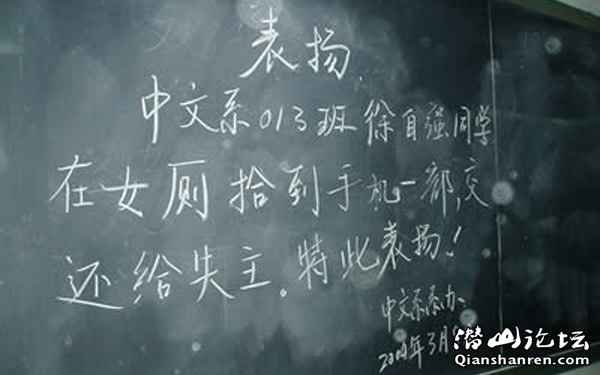 表扬
中文系013班徐自强同学
在女厕拾到手机一部,交
还给失主。特此表扬!
中文系系办
潜山论坛
Qianshanren.com